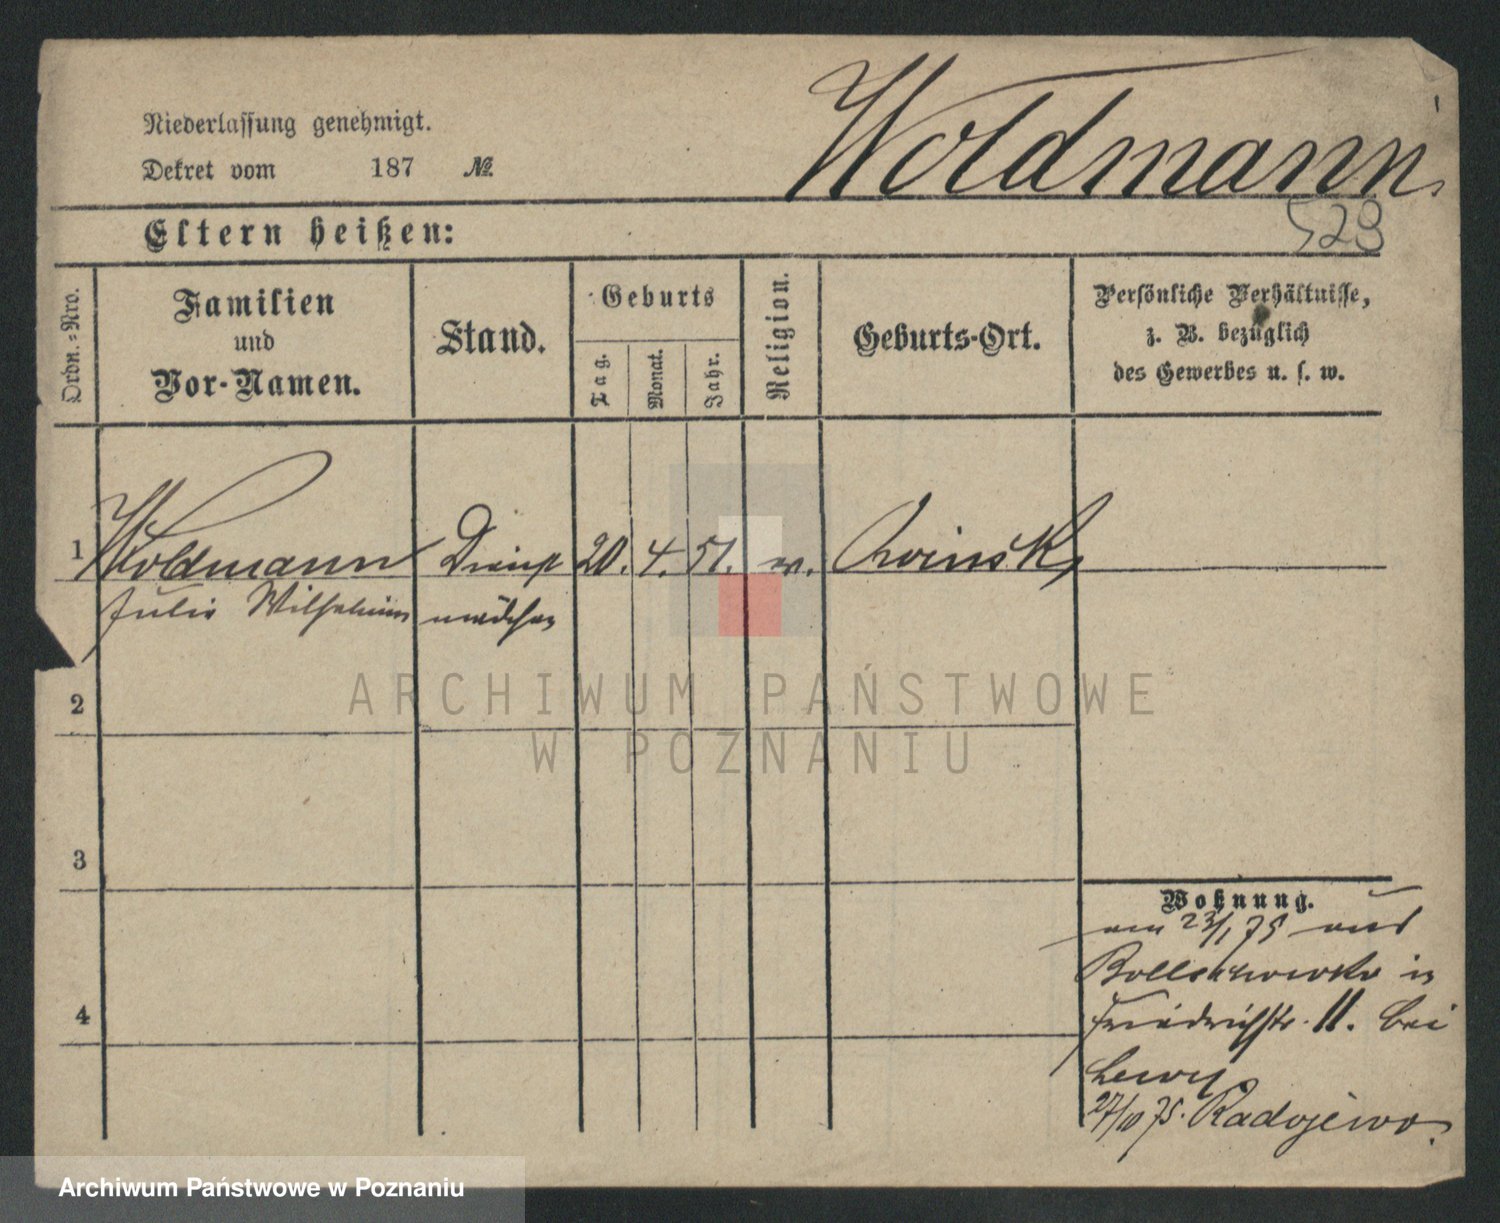 Woldmann.
Niederlassung genehmigt.
Dekret vom 187 №
528
Eltern heißen:
Ordn.-Nro.
Familien
und
Vor-Namen.
Stand.
Geburts
Tag.
Monat.
Jahr.
Religion.
Geburts-Ort.
Persönliche Verhältnisse,
z. B. bezüglich
des Gewerbes u. s. w.
1 Woldmann Dienst 20. 4. 51. Owinsk
Julie Wilhelmine mädchen
2
3
4
Wohnung.
am 23/1 75 aus
in
Friedrichstr. 11. bei
Lewy.
27/10 75. Radojewo.
ARCHIWUM PAŃSTWOWE
W POZNANIU
Archiwum Państwowe w Poznaniu